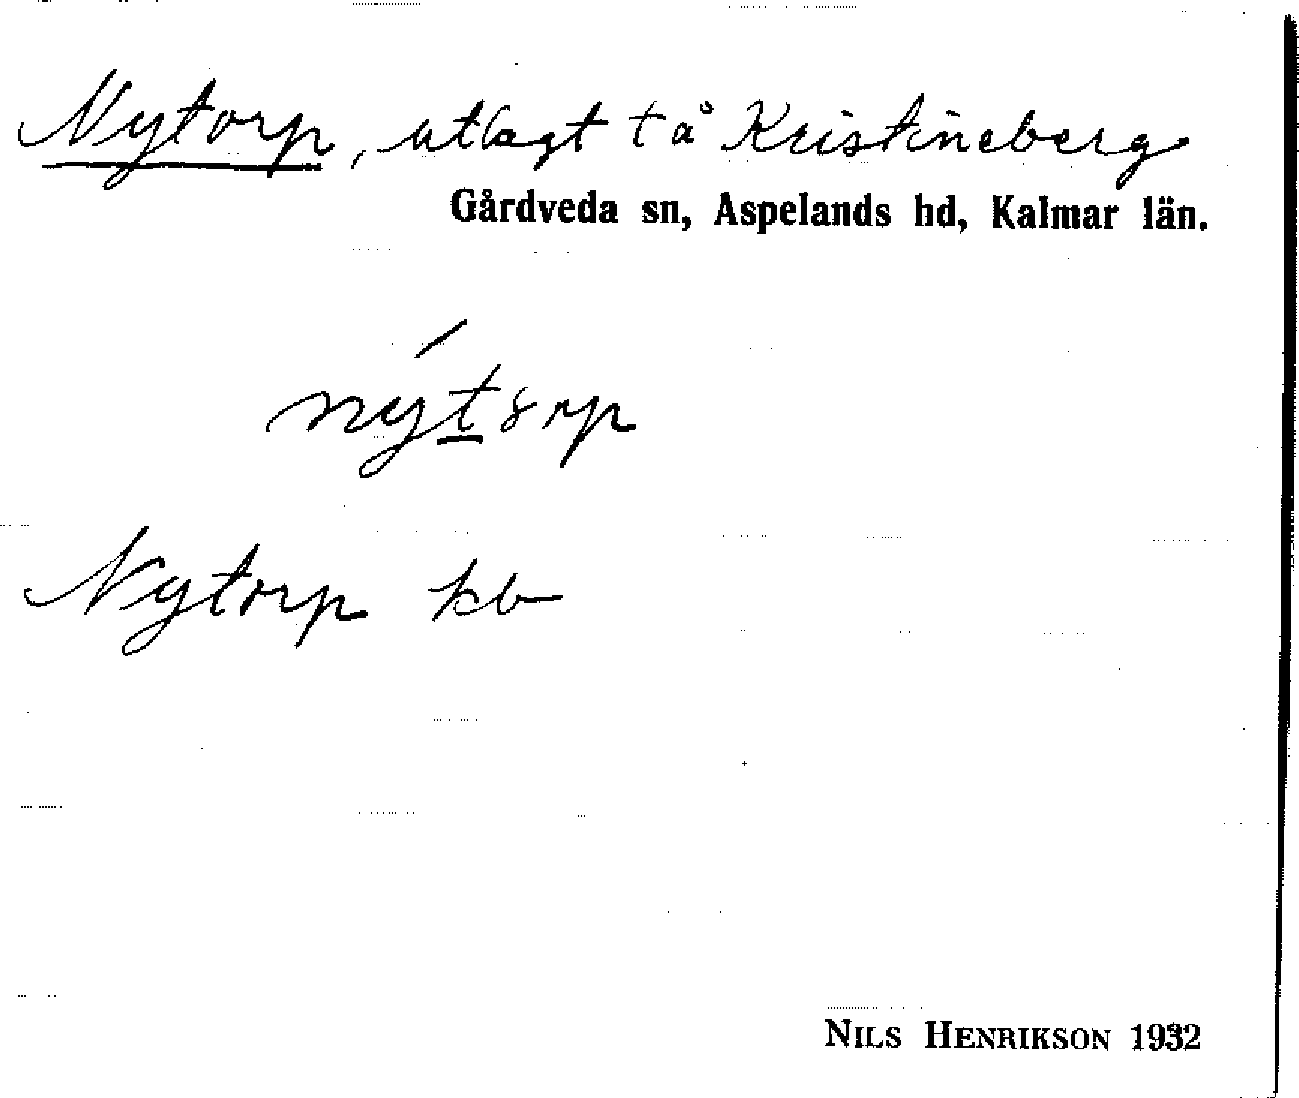 Nytorp, utlagt t å Kristineberg
Gårdveda sn, Aspelands hd, Kalmar län.
nýtorp
Nytorp kb
NILS HENRIKSON 1932